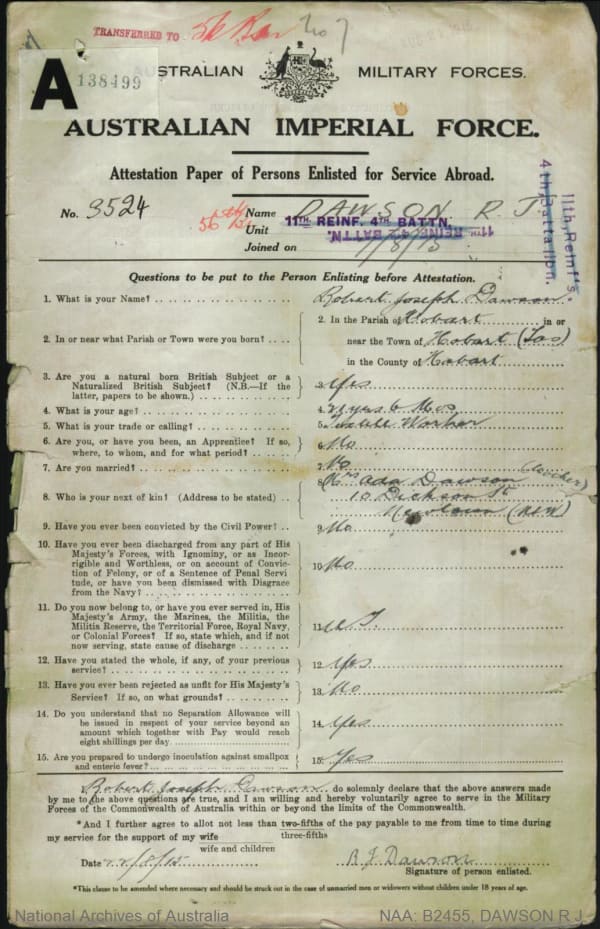 TRANSFERRED TO
A
138499
AUSTRALIAN MILITARY FORCES.
AUSTRALIAN IMPERIAL FORCE.
Attestation Paper of Persons Enlisted for Service Abroad.
No. 3524 Name DAWSON R. J.
56th Bn Unit 11TH REINF. 4TH BATTN.
Joined on /8/15
11th Reinf's
4th Battalion.
Questions to be put to the Person Enlisting before Attestation.
1. What is your Name? Robert Joseph Dawson
2. In or near what Parish or Town were you born? 2. In the Parish of Hobart in or
near the Town of Hobart (Tas)
in the County of Hobart
3. Are you a natural born British Subject or a
Naturalized British Subject? (N.B.—If the
latter, papers to be shown.) 3. Yes
4. What is your age? 4. yrs 6 Mos
5. What is your trade or calling? 5. Worker
6. Are you, or have you been, an Apprentice? If so,
where, to whom, and for what period? 6. No
7. Are you married? 7. No
8. Who is your next of kin? (Address to be stated) 8. Mrs Ada Dawson (Mother)
10 Dickson St
Newtown (NSW)
9. Have you ever been convicted by the Civil Power? 9. No
10. Have you ever been discharged from any part of His
Majesty's Forces, with Ignominy, or as Incor-
rigible and Worthless, or on account of Convic-
tion of Felony, or of a Sentence of Penal Servi
tude, or have you been Dismissed with Disgrace
from the Navy? 10. No
11. Do you now belong to, or have you ever served in, His
Majesty's Army, the Marines, the Militia, the
Militia Reserve, the Territorial Force, Royal Navy,
or Colonial Forces? If so, state which, and if not
now serving, state cause of discharge 11.
12. Have you stated the whole, if any, of your previous
service? 12. Yes
13. Have you ever been rejected as unfit for His Majesty's
Service? If so, on what grounds? 13. No
14. Do you understand that no Separation Allowance will
be issued in respect of your service beyond an
amount which together with Pay would reach
eight shillings per day 14. Yes
15. Are you prepared to undergo inoculation against smallpox
and enteric fever? 15. Yes
I Robert Joseph Dawson do solemnly declare that the above answers made
by me to the above questions are true, and I am willing and hereby voluntarily agree to serve in the Military
Forces of the Commonwealth of Australia within or beyond the limits of the Commonwealth.
*And I further agree to allot not less than two-fifths of the pay payable to me from time to time during
three-fifths
my service for the support of my wife
wife and children
Date /8/15 R J Dawson
Signature of person enlisted.
*This clause to be amended where necessary and should be struck out in the case of unmarried men or widowers without children under 18 years of age.
National Archives of Australia NAA: B2455, DAWSON R J